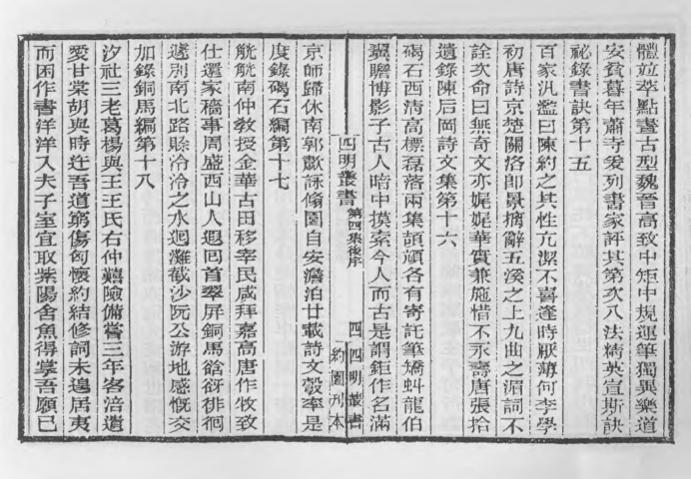 體竝萃點畫古型魏晉高致中矩中規運筆獨異樂道
安貧暮年蕭寺爰列書家評其第次八法精英宣斯訣
祕錄書訣第十五
百家汎濫曰陳約之其性亢潔不喜逢時厭薄何李學
初唐詩京楚關洛卽景摛辭五溪之上九曲之湄詞不
詮次命曰無奇文亦娓娓華實兼施惜不永壽唐張拾
遺錄陳后岡詩文集第十六
碣石西清高標磊落兩集頡頏各有寄託筆矯虯龍伯
翼贍博影子古人暗中摸索今人而古是謂鉅作名滿
四明叢書 第四集後序 四 四明叢書 約園刊本
京師歸休南郭歗詠脩園自安澹泊廿載詩文彀率是
度錄碣石編第十七
觥觥南仲敎授金華古田移宰民咸拜嘉高唐作牧致
仕還家稽事周盛西山人遐回首翠屏銅馬谽谺徘徊
遽別南北路賒泠泠之水迴灘截沙阮公游地感慨交
加錄銅馬編第十八
汐社三老葛楊與王王氏右仲囏險備嘗三年客涪遺
愛甘棠胡與時迕吾道窮傷匈懷約結修詞未遑居夷
而困作書洋洋入夫子室宜取紫陽舍魚得掌吾願已